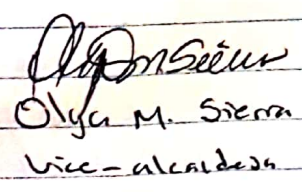 Olga M. Sierra
Vice-alcaldesa